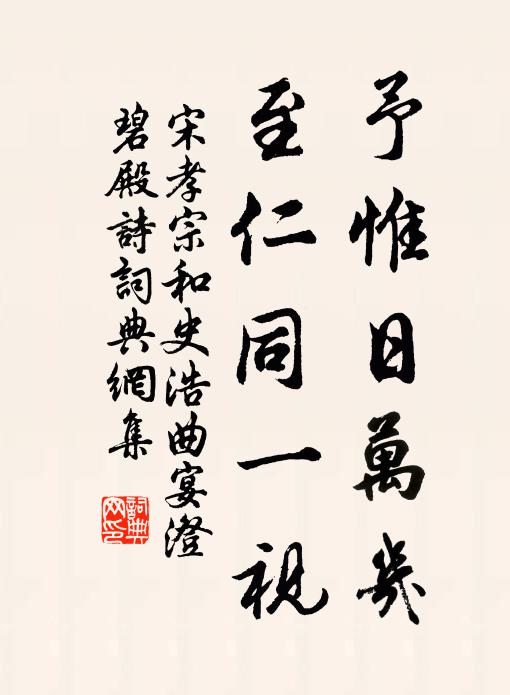 予惟日萬幾
至仁同一視
宋孝宗和史浩曲宴澄
碧殿詩詞典網集
詞典網印